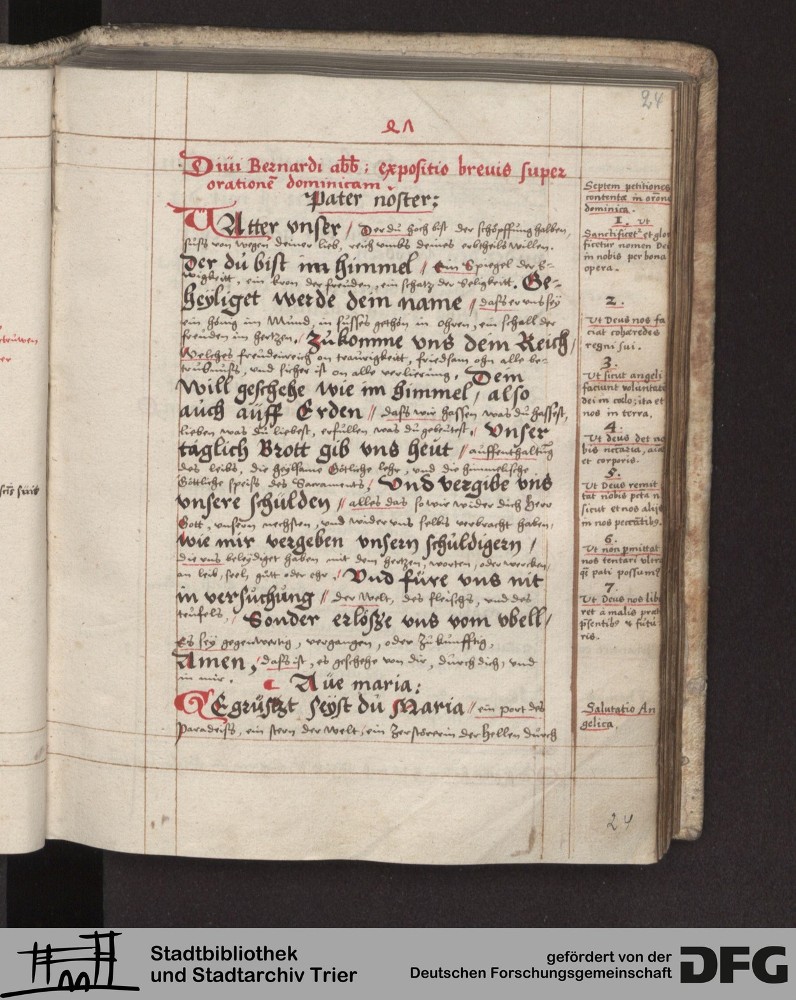 24
21
Divi Bernardi abb: expositio brevis super
orationē dominicam.
Pater noster:
VAtter vnser // Der du hoch bist der schöpffung halben,
süss von wegen deiner lieb, reich vmbs deines erbtheils willen.
Der du bist im himmel // Ein Spiegel der E-
wigkeitt, ein kron der freuden, ein schatz der Seligkeitt. Ge-
heyliget werde dein name // dass er vns sey
ein honig im Mund, ein süsses gethön in ohren, ein schall der
freuden im hertzen. Zukomme vns dein Reich/
Welches freudenreich on traurigkeitt, friedsam ohn alle be-
trübnüss, und sicher ist on alle verlierung. Dein
will geschehe wie im himmel, also
auch auff Erden // dass wir hassen was du hassest,
lieben was du liebest, erfüllen was du gebeutest. Vnser
täglich Brott gib vns heut // auffenthaltung
des leibs, die heylsame Göttliche lehr, und die himmelische
Göttliche speiss des Sacraments. Vnd vergibe vns
vnsere schulden // alles das so wir wider dich Herr
Gott, unsern nechsten, und wider uns selbs verbracht haben,
wie mir vergeben vnsern schuldigern /
die uns beleydiget haben mit dem hertzen, worten, oder wercken,
an leib, seel, gutt oder ehr. Vnd füre vns nit
in versuchung // der Welt, des fleischs, und des
teufels, Sonder erlösze vns vom vbell/
Es sey gegenwertig, vergangen, oder zukünfftig,
Amen, dass ist, es geschehe von dir, durch dich, und
in mir.
Aue maria:
GEgrüszt seyst du Maria // ein port des
Paradeiss, ein stern der Welt, ein zerstörerin der Hellen durch
Septem petitiones
contentæ in orone
dominica.
1. Vt
Sanctificet et glor
ficetur nomen Dei
in nobis per bona
opera.
2.
Vt Deus nos fa
ciat cohæredes
regni sui.
3.
Vt sicut angeli
faciunt voluntatē
dei in cœlo; ita et
nos in terra.
4.
Vt deus det no
bis necaria, aīæ
et corporis.
5.
Vt Deus remit
tat nobis pcta n
sicut et nos alijs
in nos peccātibꝯ.
6.
Vt non pmittat
nos tentari vltra
qᷓ pati possumꝯ
7.
Vt Deus nos libe
ret à malis præt
pſentibꝯ & futu
ris.
Salutatio An
gelica.
24
Stadtbibliothek
und Stadtarchiv Trier
gefördert von der
Deutschen Forschungsgemeinschaft
DFG